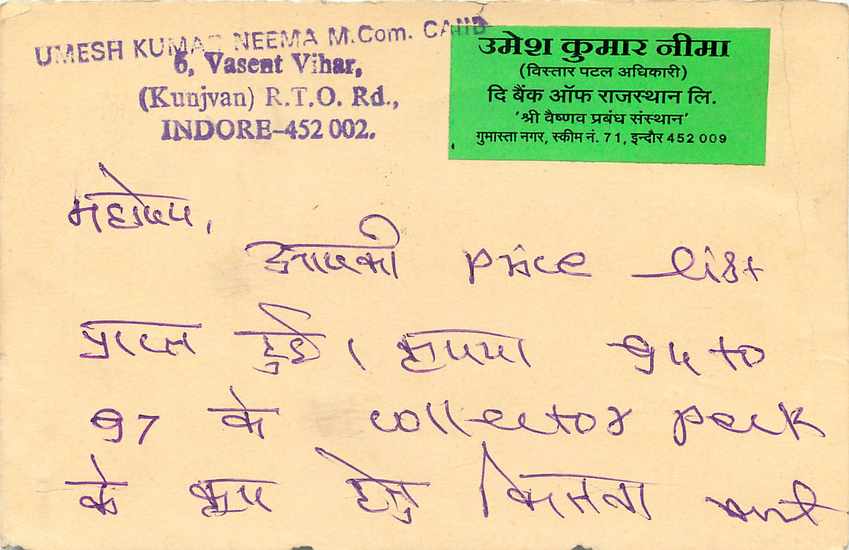 UMESH KUMAR NEEMA M.Com. CAIIB
6, Vasent Vihar,
(Kunjvan) R.T.O. Rd.,
INDORE-452 002.
उमेश कुमार नीमा
(विस्तार पटल अधिकारी)
दि बैंक ऑफ राजस्थान लि.
'श्री वैष्णव प्रबंध संस्थान'
गुमास्ता नगर, स्कीम नं. 71, इन्दौर 452 009
महोदय,
आपकी price list
प्राप्त हुई। कृपया to
97 के collector pack
के क्रय हेतु कितना